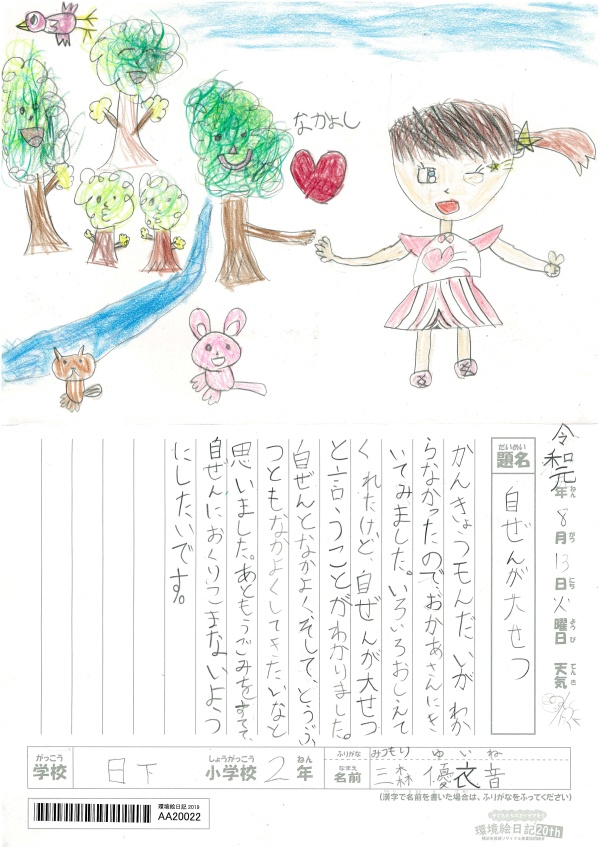 なかよし
令和元年ねん8月がつ13日にち火曜日ようび 天気てんき
題名だいめい 自ぜんが大せつ
かんきょうモんだいがわか
らなかったので、おかあさんにき
いてみました。いろいろおしえて
くれたけど、自ぜんが大せつ
と言うことがわかりました。
自ぜんとなかよくそして、どうぶ
つともなかよくしてきたいなと
思いました。あともうごみをすてて、
自ぜんにおくりこまないよう
にしたいです。
学校がっこう 日下 小学校しょうがっこう 2年ねん
ふりがな みつもり ゆいね
名前なまえ 三森 優衣音
(漢字で名前を書いた場合は、ふりがなをふってください)
環境絵日記 2019
AA20022
環境絵日記 20th